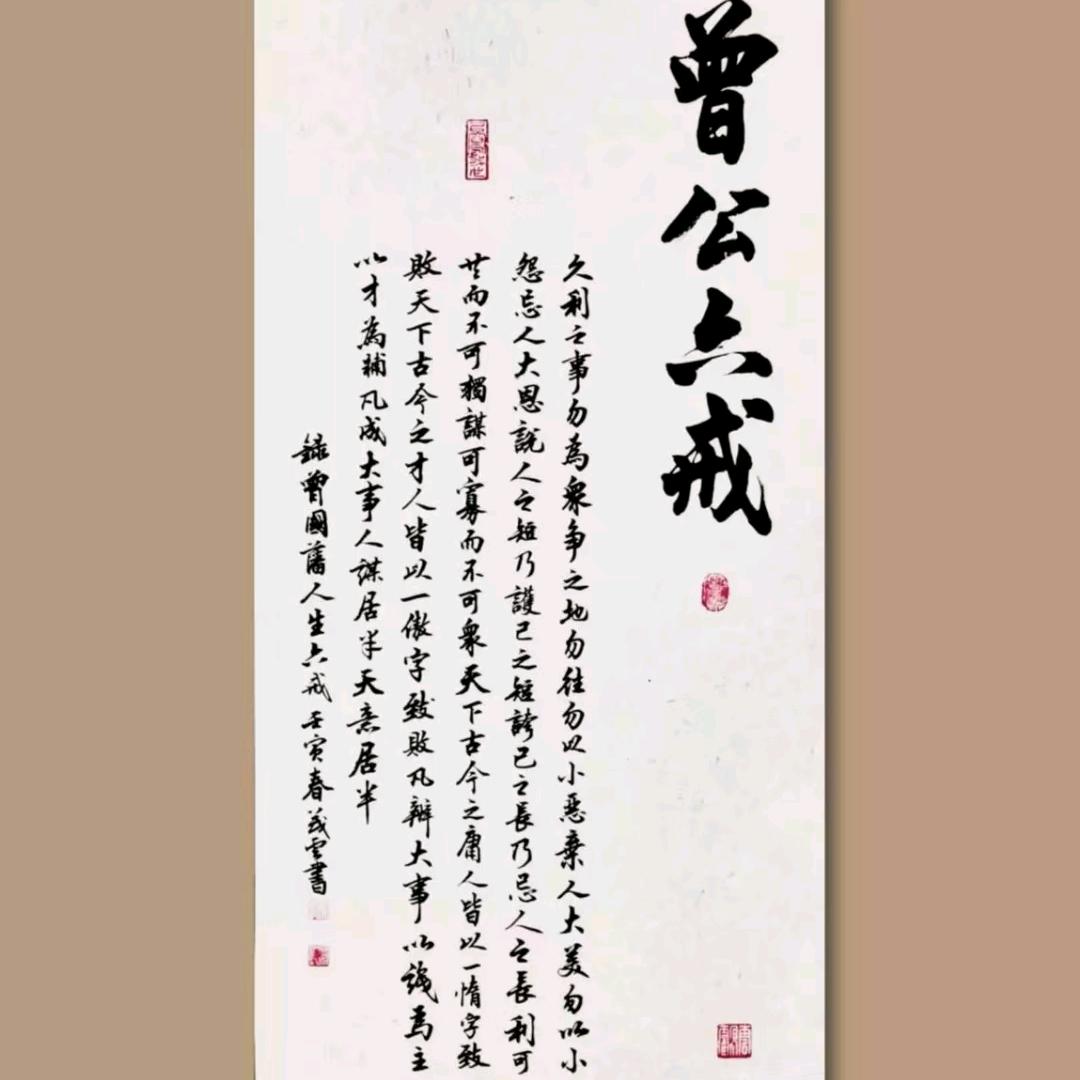 曾公六戒
久利之事勿為衆争之地勿往勿以小惡棄人大美勿以小
怨忌人大恩說人之短乃護己之短誇己之長乃忌人之長利可
共而不可獨謀可寡而不可衆天下古今之庸人皆以一惰字致
敗天下古今之才人皆以一傲字致敗凡辦大事以識為主
以才為輔凡成大事人謀居半天意居半
錄曾國藩人生六戒壬寅春茂雲書